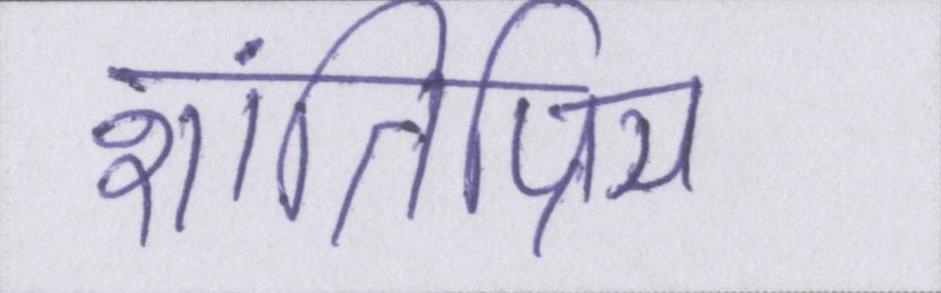 शांतिप्रिय